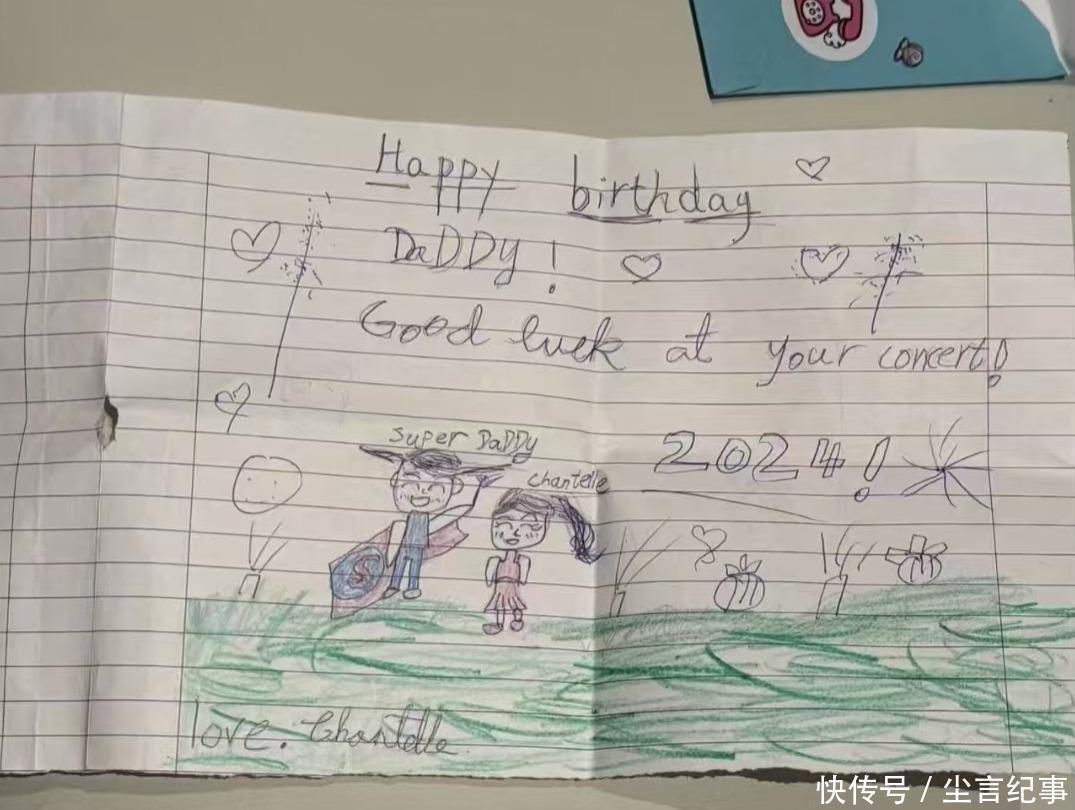 Happy birthday
DaDDy!
Good luck at your concert!
Super DaDDy
chantelle
2024!
S
love. Chantelle
快传号 / 尘言纪事